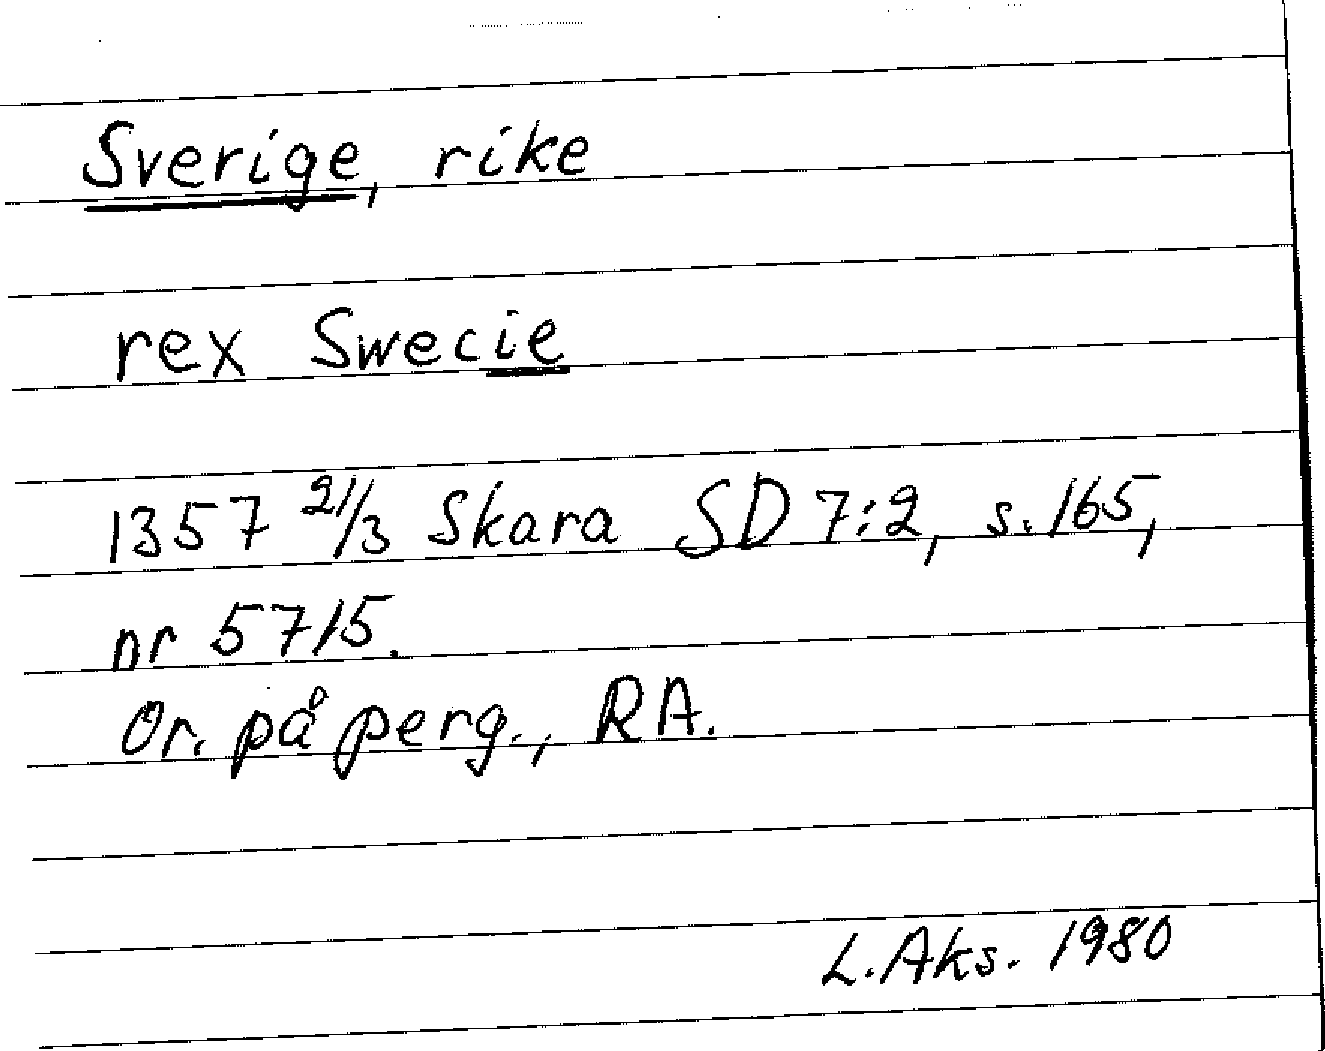 Sverige, rike
rex Swecie
1357 21/3 Skara SD 7:2, s. 165,
nr 5715.
Or. på perg., RA.
L. Aks. 1980